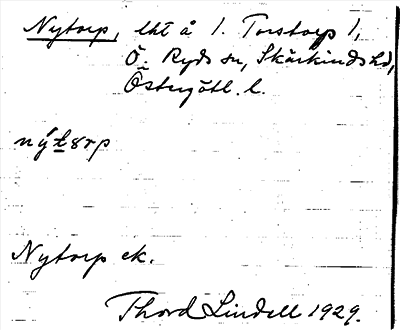 Nytorp, lht å 1. Torstorp 1,
Ö. Ryds sn, Skärkinds hd,
Östergötl. l.
Nytorp ek.
Thord Lindell 1929.